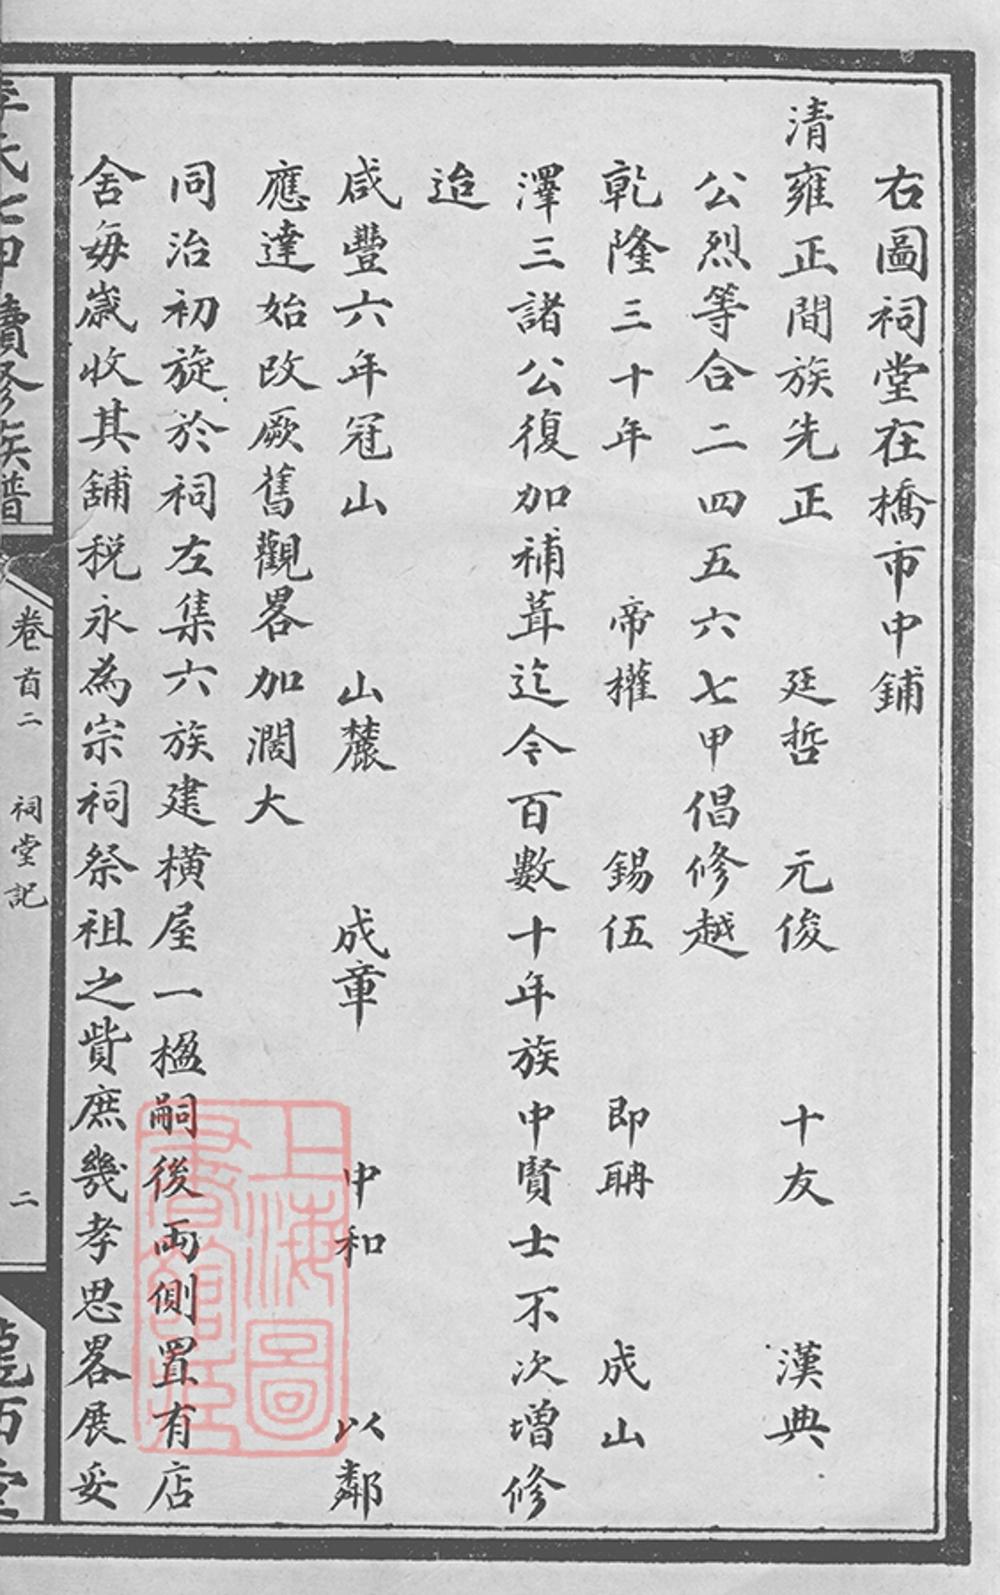 右圖祠堂在橋市中鋪
清雍正間族先正 廷哲 元俊 十友 漢典
公烈等合二四五六七甲倡修越
乾隆三十年 帝權 錫伍 即聃 成山
澤三諸公復加補葺迄今百數十年族中賢士不次增修
迨
咸豐六年冠山 山麓 成章 中和 以鄰
應達始改厥舊觀畧加濶大
同治初旋於祠左集六族建橫屋一楹嗣後両側置有店
舍每嵗收其舖税永為宗祠祭祖之貲庶幾孝思畧展妥
李氏七甲續修族譜
卷首二 祠堂記 二
隴西堂
上海圖書館藏